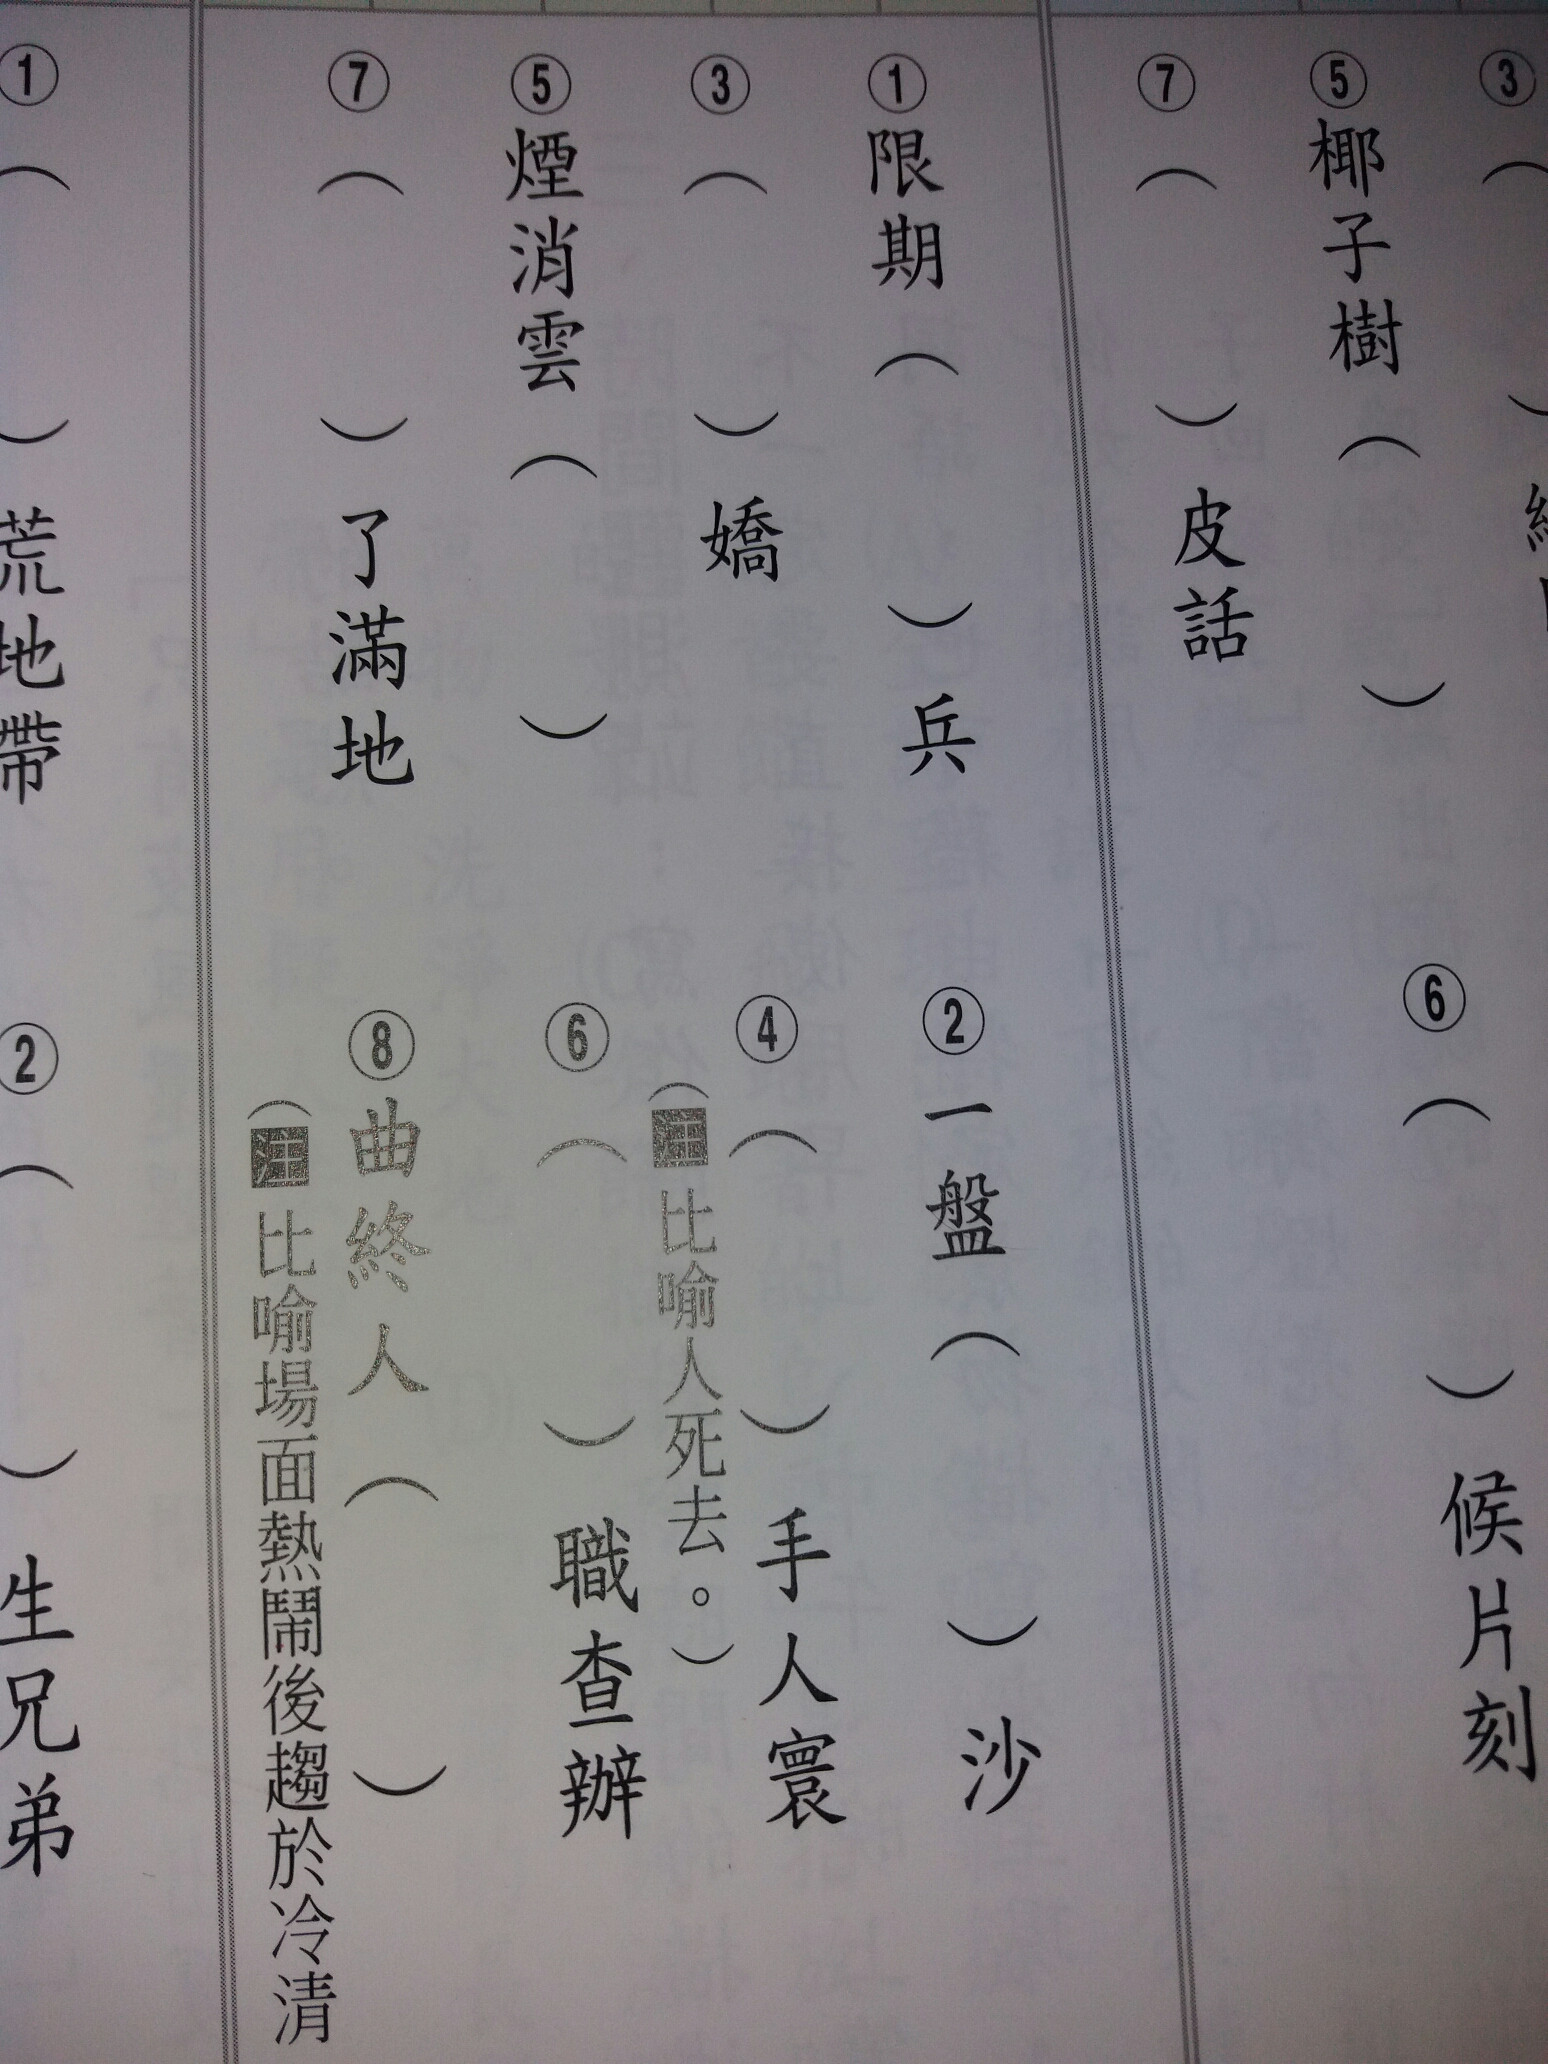 ③（　）
⑤椰子樹（　）
⑥（　）候片刻
⑦（　）皮話
①限期（　）兵
②一盤（　）沙
③（　）嬌
④（　）手人寰
（注比喻人死去。）
⑤煙消雲（　）
⑥（　）職查辦
⑦（　）了滿地
⑧曲終人（　）
（注比喻場面熱鬧後趨於冷清
①（　）荒地帶
②（　）生兄弟